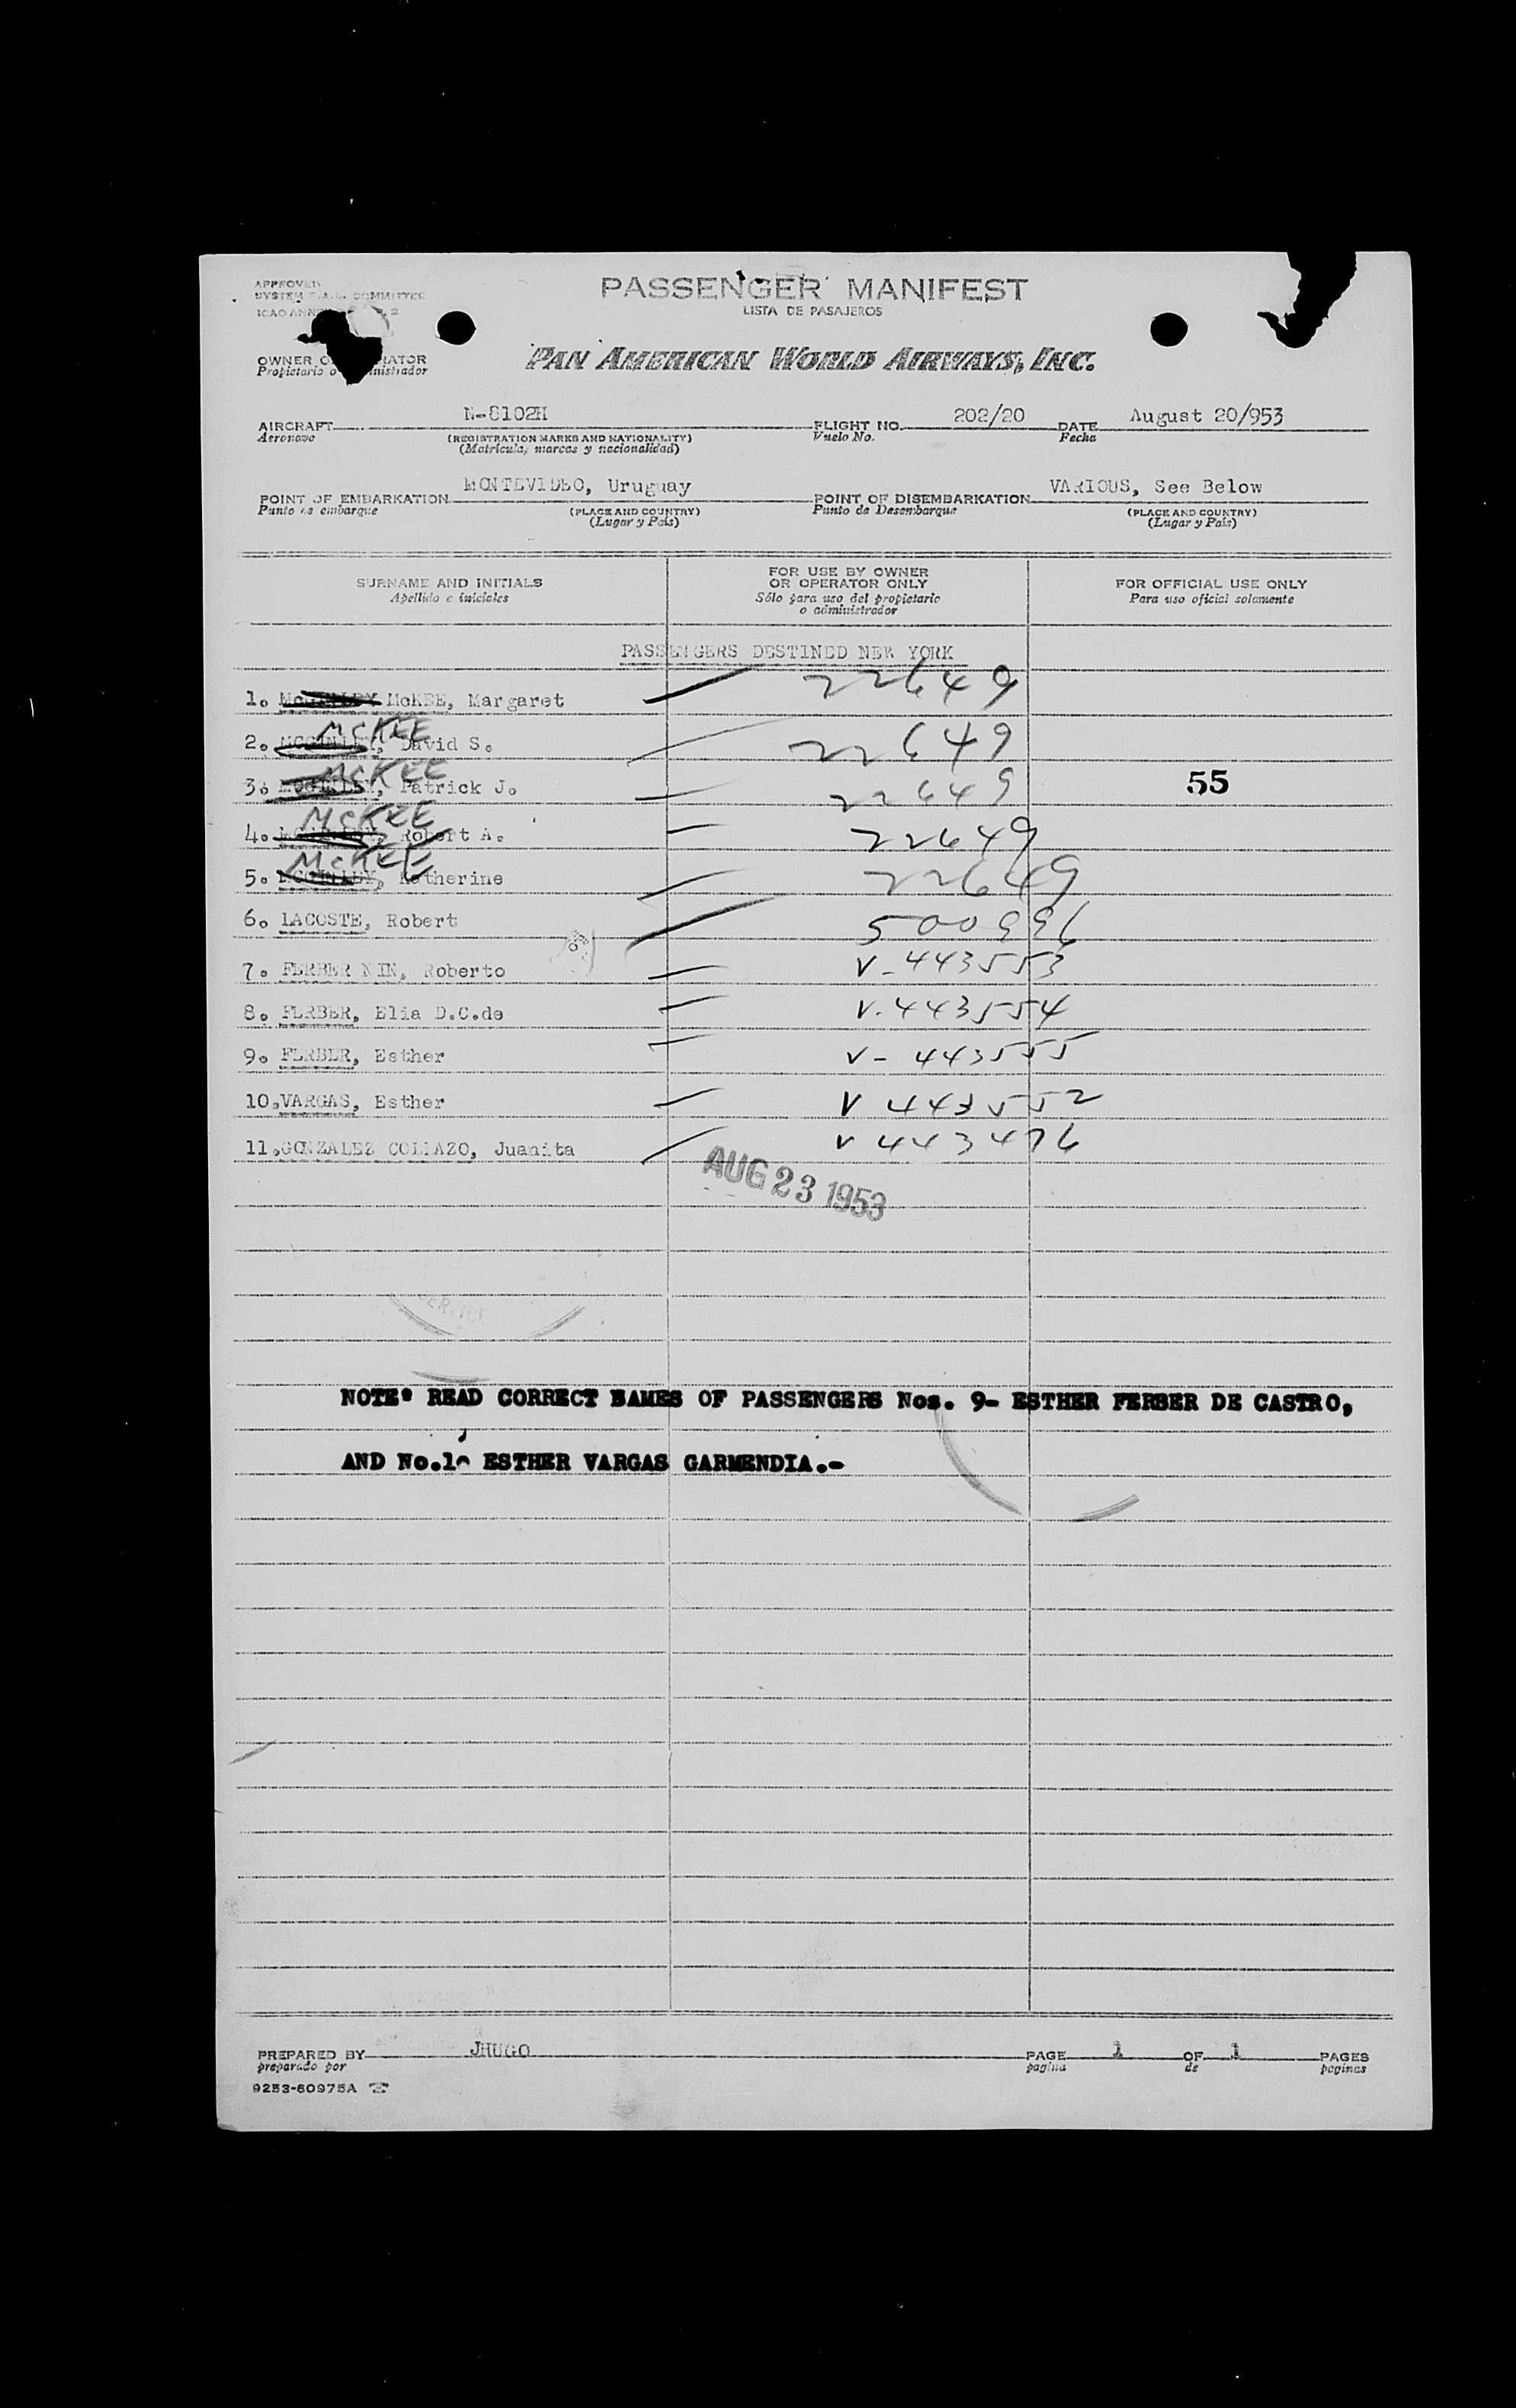 APPROVED
SYSTEM F.A.L. COMMITTEE
ICAO ANNEX 2
PASSENGER MANIFEST
LISTA DE PASAJEROS
OWNER O RATOR
Propietario o inistrador
PAN AMERICAN WORLD AIRWAYS, INC.
AIRCRAFT N-8102H FLIGHT NO. 202/20 DATE August 20/953
Aeronave (REGISTRATION MARKS AND NATIONALITY) Vuelo No. Fecha
(Matrícula, marcas y nacionalidad)
POINT OF EMBARKATION MONTEVIDEO, Uruguay POINT OF DISEMBARKATION VARIOUS, See Below
Punto de embarque (PLACE AND COUNTRY) Punto de Desembarque (PLACE AND COUNTRY)
(Lugar y País) (Lugar y País)
SURNAME AND INITIALS FOR USE BY OWNER OR OPERATOR ONLY FOR OFFICIAL USE ONLY
Apellido e iniciales Sólo para uso del propietario o administrador Para uso oficial solamente
PASSENGERS DESTINED NEW YORK
1. McKEE, Margaret 22649
2. McKEE, David S. 22649
3. McKEE, Patrick J. 22649 55
4. McKEE, Robert A. 22649
5. McKEE, Katherine 22649
6. LACOSTE, Robert 500996
7. FERBER NIN, Roberto V-443553
8. FERBER, Elia D.C.de V-443554
9. FERBER, Esther V-443555
10. VARGAS, Esther V 443552
11. GONZALEZ COLLAZO, Juanita V 443476
AUG 23 1953
NOTE* READ CORRECT NAMES OF PASSENGERS Nos. 9- ESTHER FERBER DE CASTRO,
AND No.10 ESTHER VARGAS GARMENDIA.-
PREPARED BY JHUGO PAGE 1 OF 1 PAGES
preparado por pagina de paginas
9253-60975A